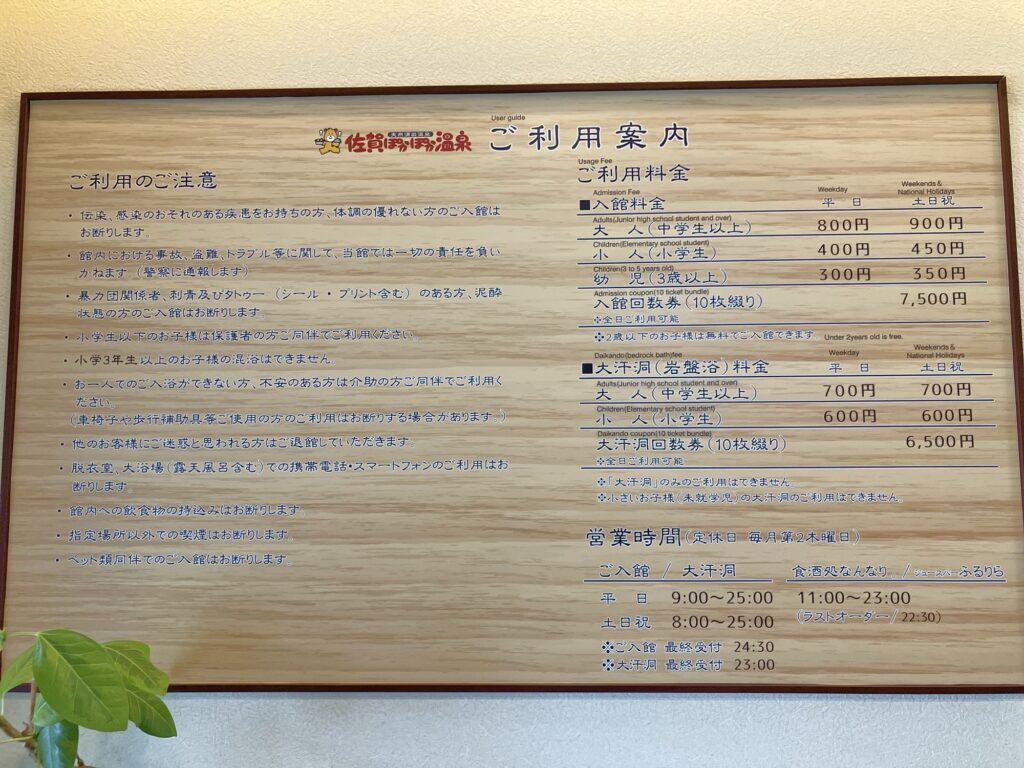 User guide
佐賀ぽかぽか温泉 ご利用案内
ご利用のご注意
・伝染、感染のおそれのある疾患をお持ちの方、体調の優れない方のご入館は
お断りします。
・館内における事故、盗難、トラブル等に関して、当館では一切の責任を負い
かねます（警察に通報します）
・暴力団関係者、刺青及びタトゥー（シール・プリント含む）のある方、泥酔
状態の方のご入館はお断りします。
・小学生以下のお子様は保護者の方ご同伴でご利用ください。
・小学3年生以上のお子様の混浴はできません。
・お一人でのご入浴ができない方、不安のある方は介助の方ご同伴でご利用く
ださい。
（車椅子や歩行補助具等ご使用の方のご利用はお断りする場合があります。）
・他のお客様にご迷惑と思われる方はご退館していただきます。
・脱衣室、大浴場（露天風呂含む）での携帯電話・スマートフォンのご利用はお
断りします。
・館内への飲食物の持込みはお断りします。
・指定場所以外での喫煙はお断りします。
・ペット類同伴でのご入館はお断りします。
Usage Fee
ご利用料金
Admission Fee Weekday Weekends & National Holidays
■入館料金 平日 土日祝
Adults(Junior high school student and over)
大人（中学生以上） 800円 900円
Children(Elementary school student)
小人（小学生） 400円 450円
Children(3 to 5 years old)
幼児（3歳以上） 300円 350円
Admission coupon(10 ticket bundle)
入館回数券（10枚綴り） 7,500円
❖全日ご利用可能
❖2歳以下のお子様は無料でご入館できます Under 2years old is free.
Daikando(bedrock bath)fee Weekday Weekends & National Holidays
■大汗洞（岩盤浴）料金 平日 土日祝
Adults(Junior high school student and over)
大人（中学生以上） 700円 700円
Children(Elementary school student)
小人（小学生） 600円 600円
Daikando coupon(10 ticket bundle)
大汗洞回数券（10枚綴り） 6,500円
❖全日ご利用可能
❖「大汗洞」のみのご利用はできません。
❖小さいお子様（未就学児）の大汗洞のご利用はできません。
営業時間（定休日 毎月第2木曜日）
ご入館 / 大汗洞
平日 9:00～25:00
土日祝 8:00～25:00
❖ご入館 最終受付 24:30
❖大汗洞 最終受付 23:00
食酒処なんなり… / ジュースバーふるりら
11:00～23:00
（ラストオーダー/22:30）